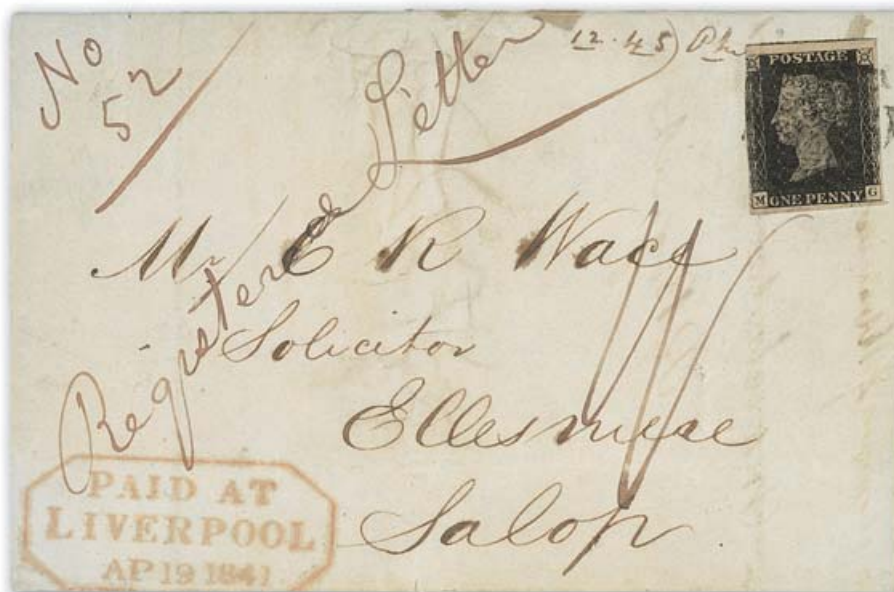 No
52
Registered Letter
12.45
POSTAGE
M ONE PENNY G
Mr E R Wace
Solicitor
Ellesmere
Salop
PAID AT
LIVERPOOL
AP 19 1841